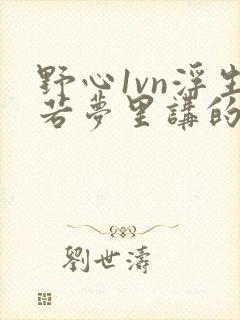 野心1vn浮生
若夢里講的
劉世濤